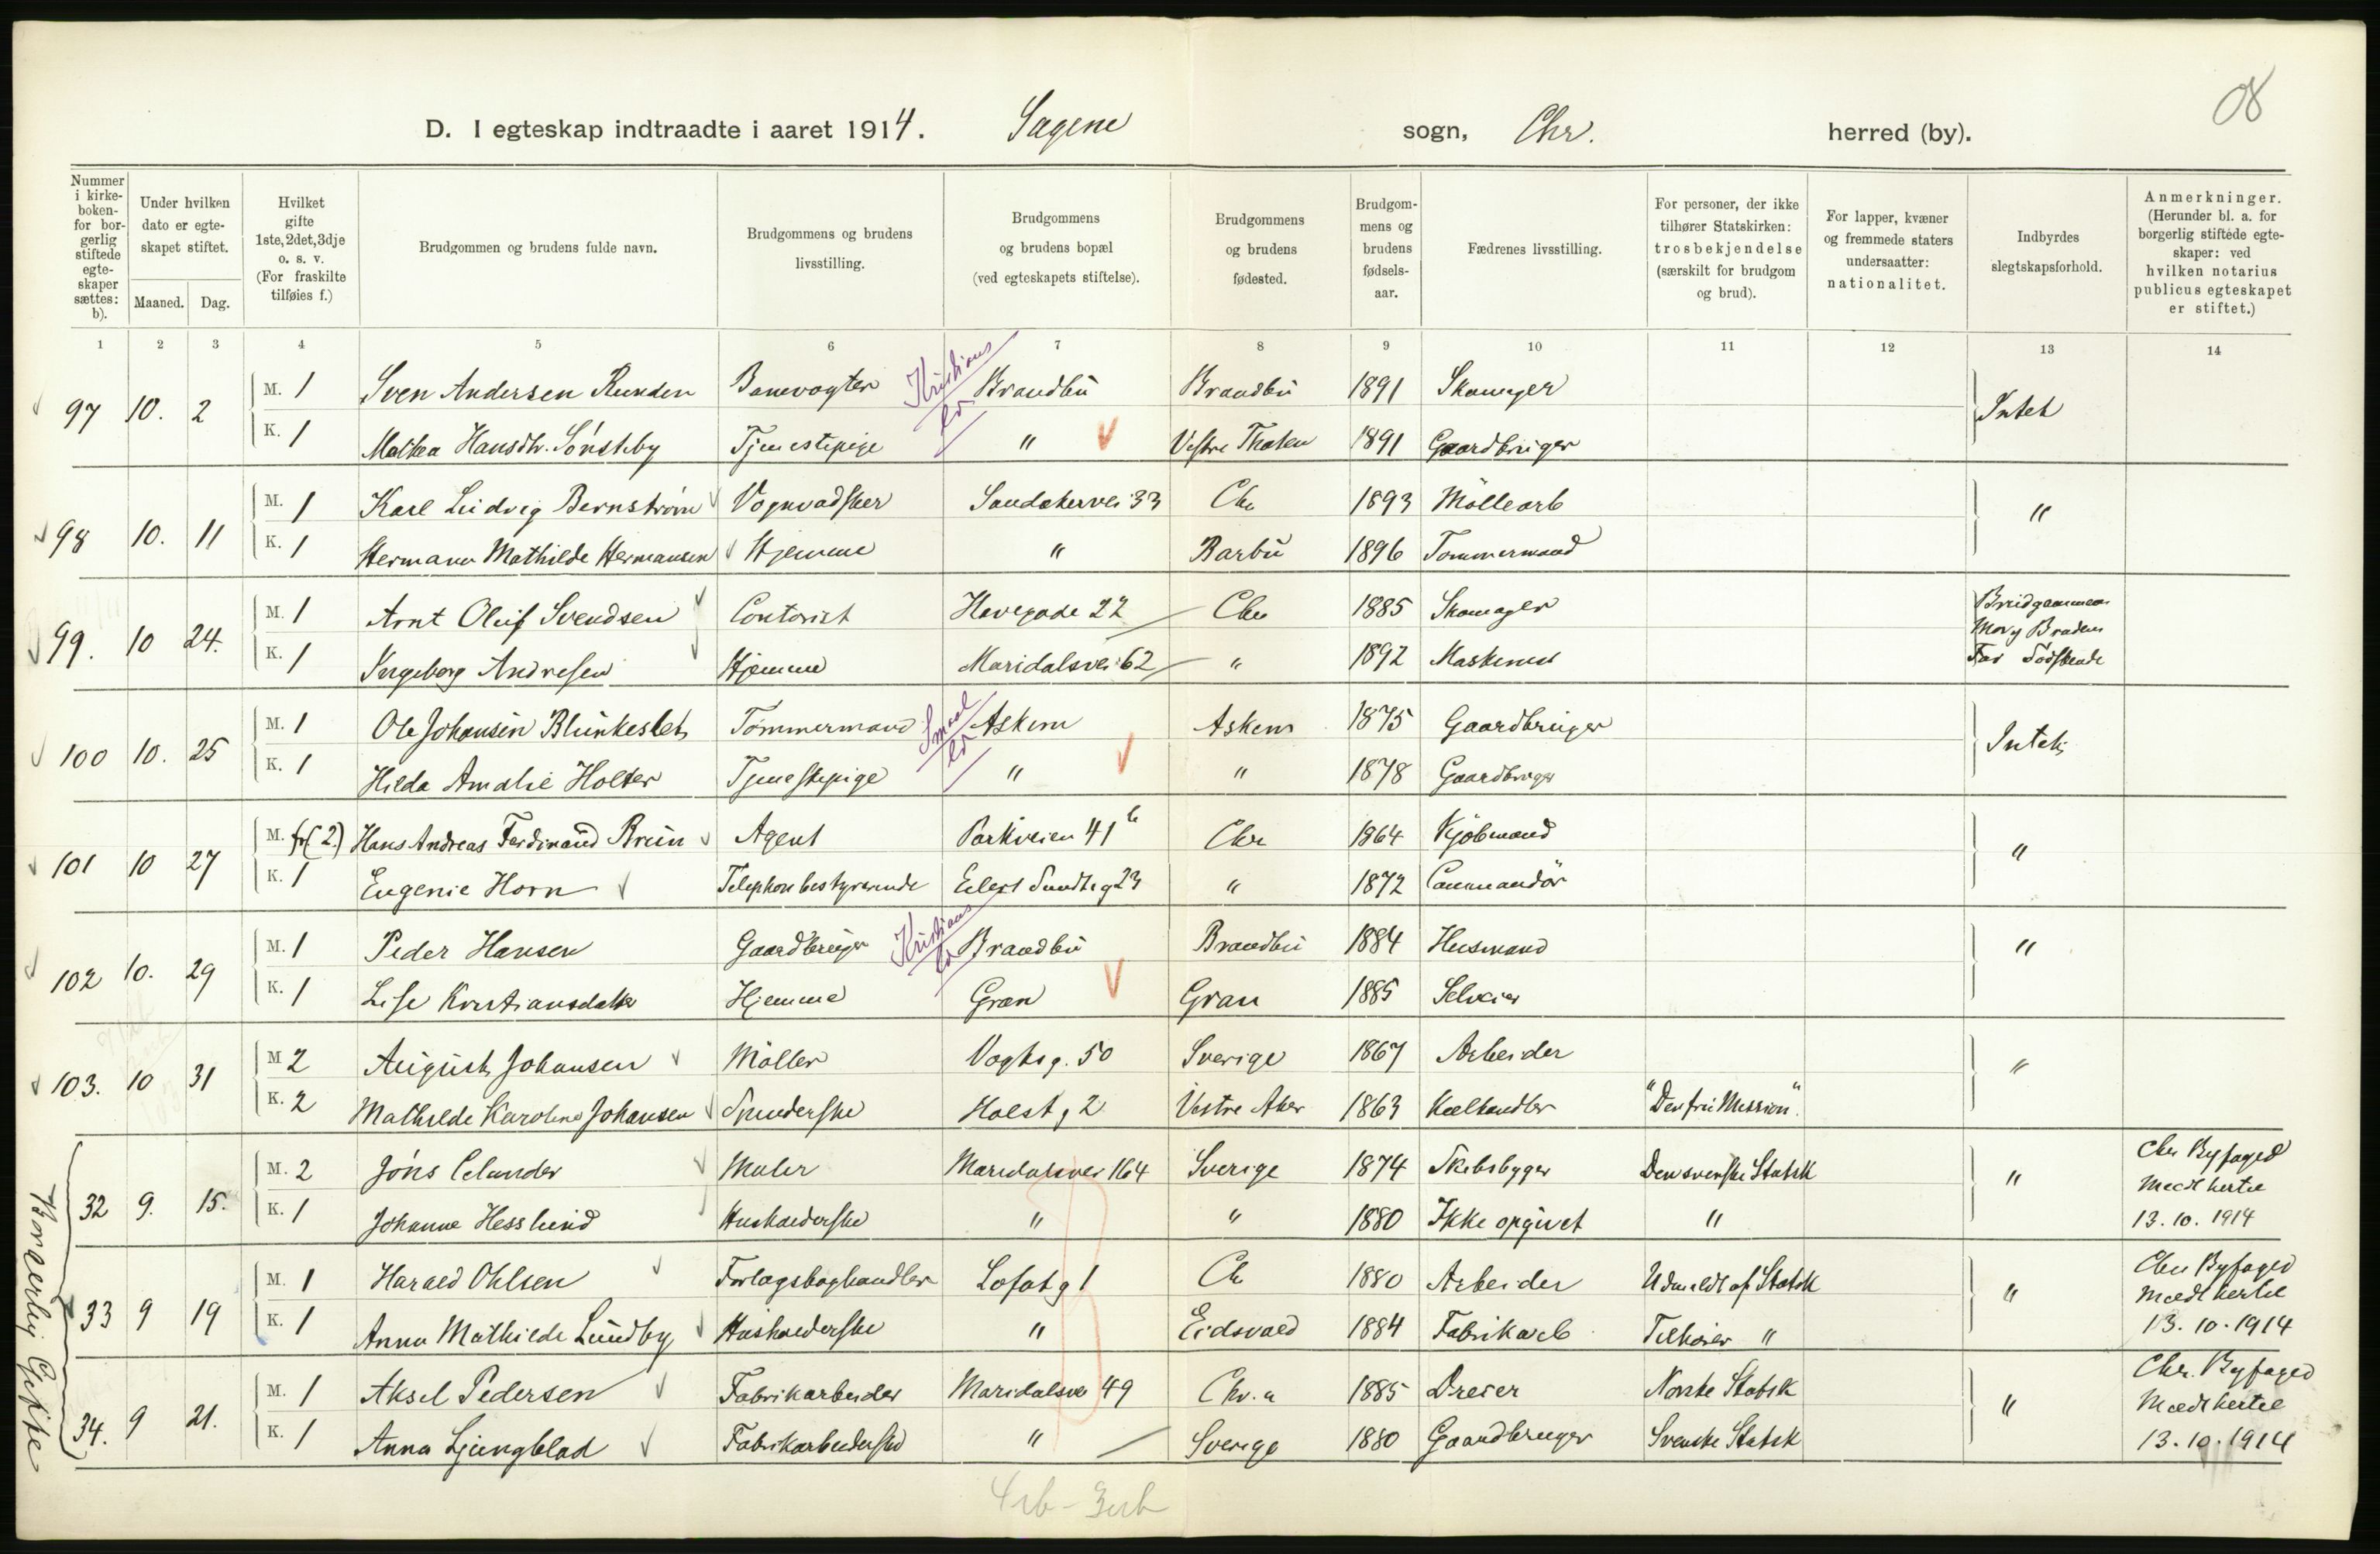 08
D. I egteskap indtraadte i aaret 1914. Sagene sogn, Chr. herred (by).
Nummer i kirkeboken- for borgerlig stiftede egteskaper sættes: b).
Under hvilken dato er egteskapet stiftet.
Maaned. Dag.
Hvilket gifte 1ste, 2det, 3dje o. s. v. (For fraskilte tilføies f.)
Brudgommen og brudens fulde navn.
Brudgommens og brudens livsstilling.
Brudgommens og brudens bopæl (ved egteskapets stiftelse).
Brudgommens og brudens fødested.
Brudgommens og brudens fødselsaar.
Fædrenes livsstilling.
For personer, der ikke tilhører Statskirken: trosbekjendelse (særskilt for brudgom og brud).
For lapper, kvæner og fremmede staters undersaatter: nationalitet.
Indbyrdes slegtskapsforhold.
Anmerkninger. (Herunder bl. a. for borgerlig stiftede egteskaper: ved hvilken notarius publicus egteskapet er stiftet.)
1 2 3 4 5 6 7 8 9 10 11 12 13 14
97 10. 2 M. 1 Sven Andersen Runden Banevogter Kristians Brandbu Brandbu 1891 Skomager Intet
K. 1 Mathea Hansdtr. Sønsteby Tjenestepige " Vestre Thoten 1891 Gaardbruger
98 10. 11 M. 1 Karl Ludvig Bernstrøm Vognvadsker Sandakervei 33 Chr 1893 Møllearb "
K. 1 Hermana Mathilde Hermansen Hjemme " Barbu 1896 Tømmermand
99. 10 24. M. 1 Arnt Oluf Svendsen Contorist Havegade 22 Chr 1885 Skomager Brudgommens Mor og Brudens Far Sødskende
K. 1 Ingeborg Andresen Hjemme Maridalsvei 62 " 1892 Maskinist
100 10. 25 M. 1 Ole Johansen Blunkeslet Tømmermand Smaal Askim Askim 1875 Gaardbruger Intet
K. 1 Hilda Amalie Holter Tjenestepige " " 1878 Gaardbruger
101 10 27 M. f(2) Hans Andreas Ferdinand Bruun Agent Parkveien 41 b Chr 1864 Kjøbmand "
K. 1 Eugenie Horn Telephonbestyrerinde Eilert Sundts g 23 " 1872 Commandør
102 10. 29 M. 1 Peder Hansen Gaardbruger Kristians Brandbu Brandbu 1884 Husmand "
K. 1 Lise Kristiansdatter Hjemme Gran Gran 1885 Selveier
103. 10 31 M 2 August Johansen Møller Vogts g. 50 Sverige 1867 Arbeider "
K. 2 Mathilde Karoline Johansen Spinderske Holst g 2 Vestre Aker 1863 Kulhandler "Den frie Mission".
Borgerlig Gifte
32 9. 15. M. 2 Jøns Celander Maler Maridalsvei 164 Sverige 1874 Skibsbygger Den svenske Statsk " Chr Byfoged
Meddt hertil
K. 1 Johanne Hesslund Husholderske " " 1880 Ikke opgivet " 13. 10. 1914
33 9 19 M. 1 Harald Ohlsen Forlagsboghandler Lofot g 1 Ch 1880 Arbeider Udmeldt af Statsk " Chr Byfoged
Meddt hertil
K. 1 Anna Mathilde Lundby Husholderske " Eidsvold 1884 Fabrikarb Tilhører " 13. 10. 1914
34. 9 21. M. 1 Aksel Pedersen Fabrikarbeider Maridalsvei 49 Chr.a 1885 Dreier Norske Statsk " Chr. Byfoged
Meddt hertil
K. 1 Anna Ljungblad Fabrikarbeiderske " Sverige 1880 Gaardbruger Svenske Statsk 13. 10. 1914